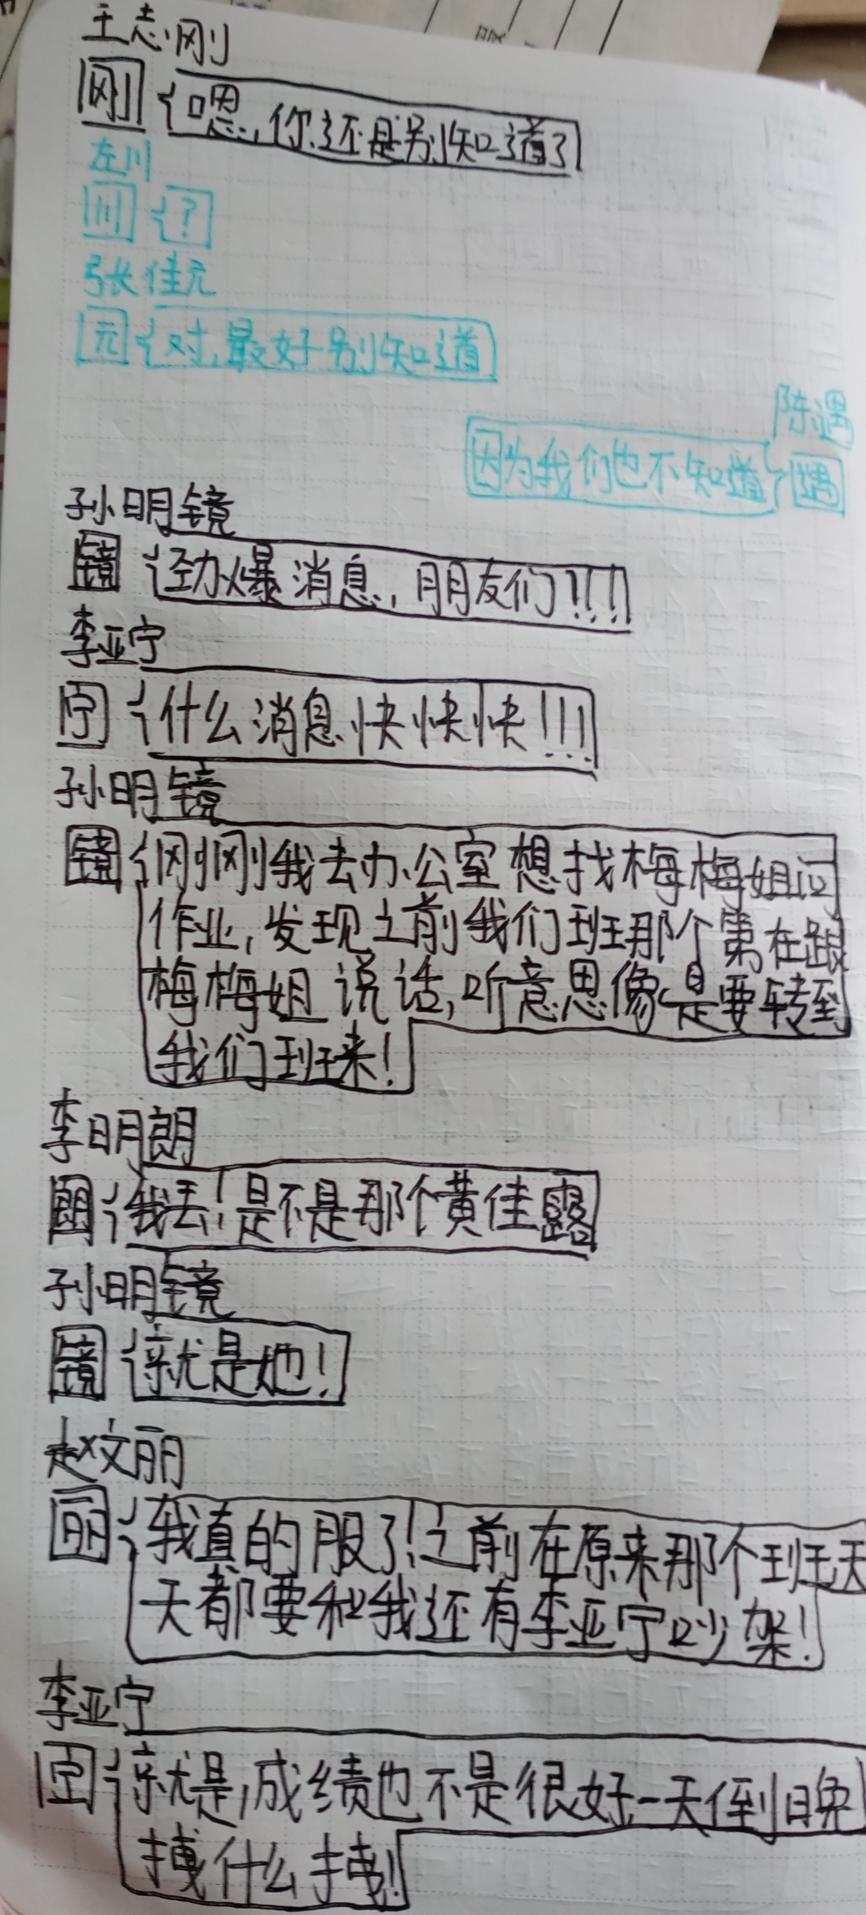 王志刚
刚 嗯,你还是别知道了
左川
川 ?
张佳元
元 对,最好别知道
陈遇
因为我们也不知道 遇
孙明镜
镜 劲爆消息,朋友们!!!
李亚宁
宁 什么消息快快快!!!
孙明镜
镜 刚刚我去办公室想找梅梅姐问
作业,发现之前我们班那个第在跟
梅梅姐说话,听意思像是要转到
我们班来!
李明朗
朗 我丢!是不是那个黄佳露
孙明镜
镜 就是她!
赵文丽
丽 我真的服了!之前在原来那个班天
天都要和我还有李亚宁吵架!
李亚宁
宁 就是,成绩也不是很好一天到晚
拽什么拽!